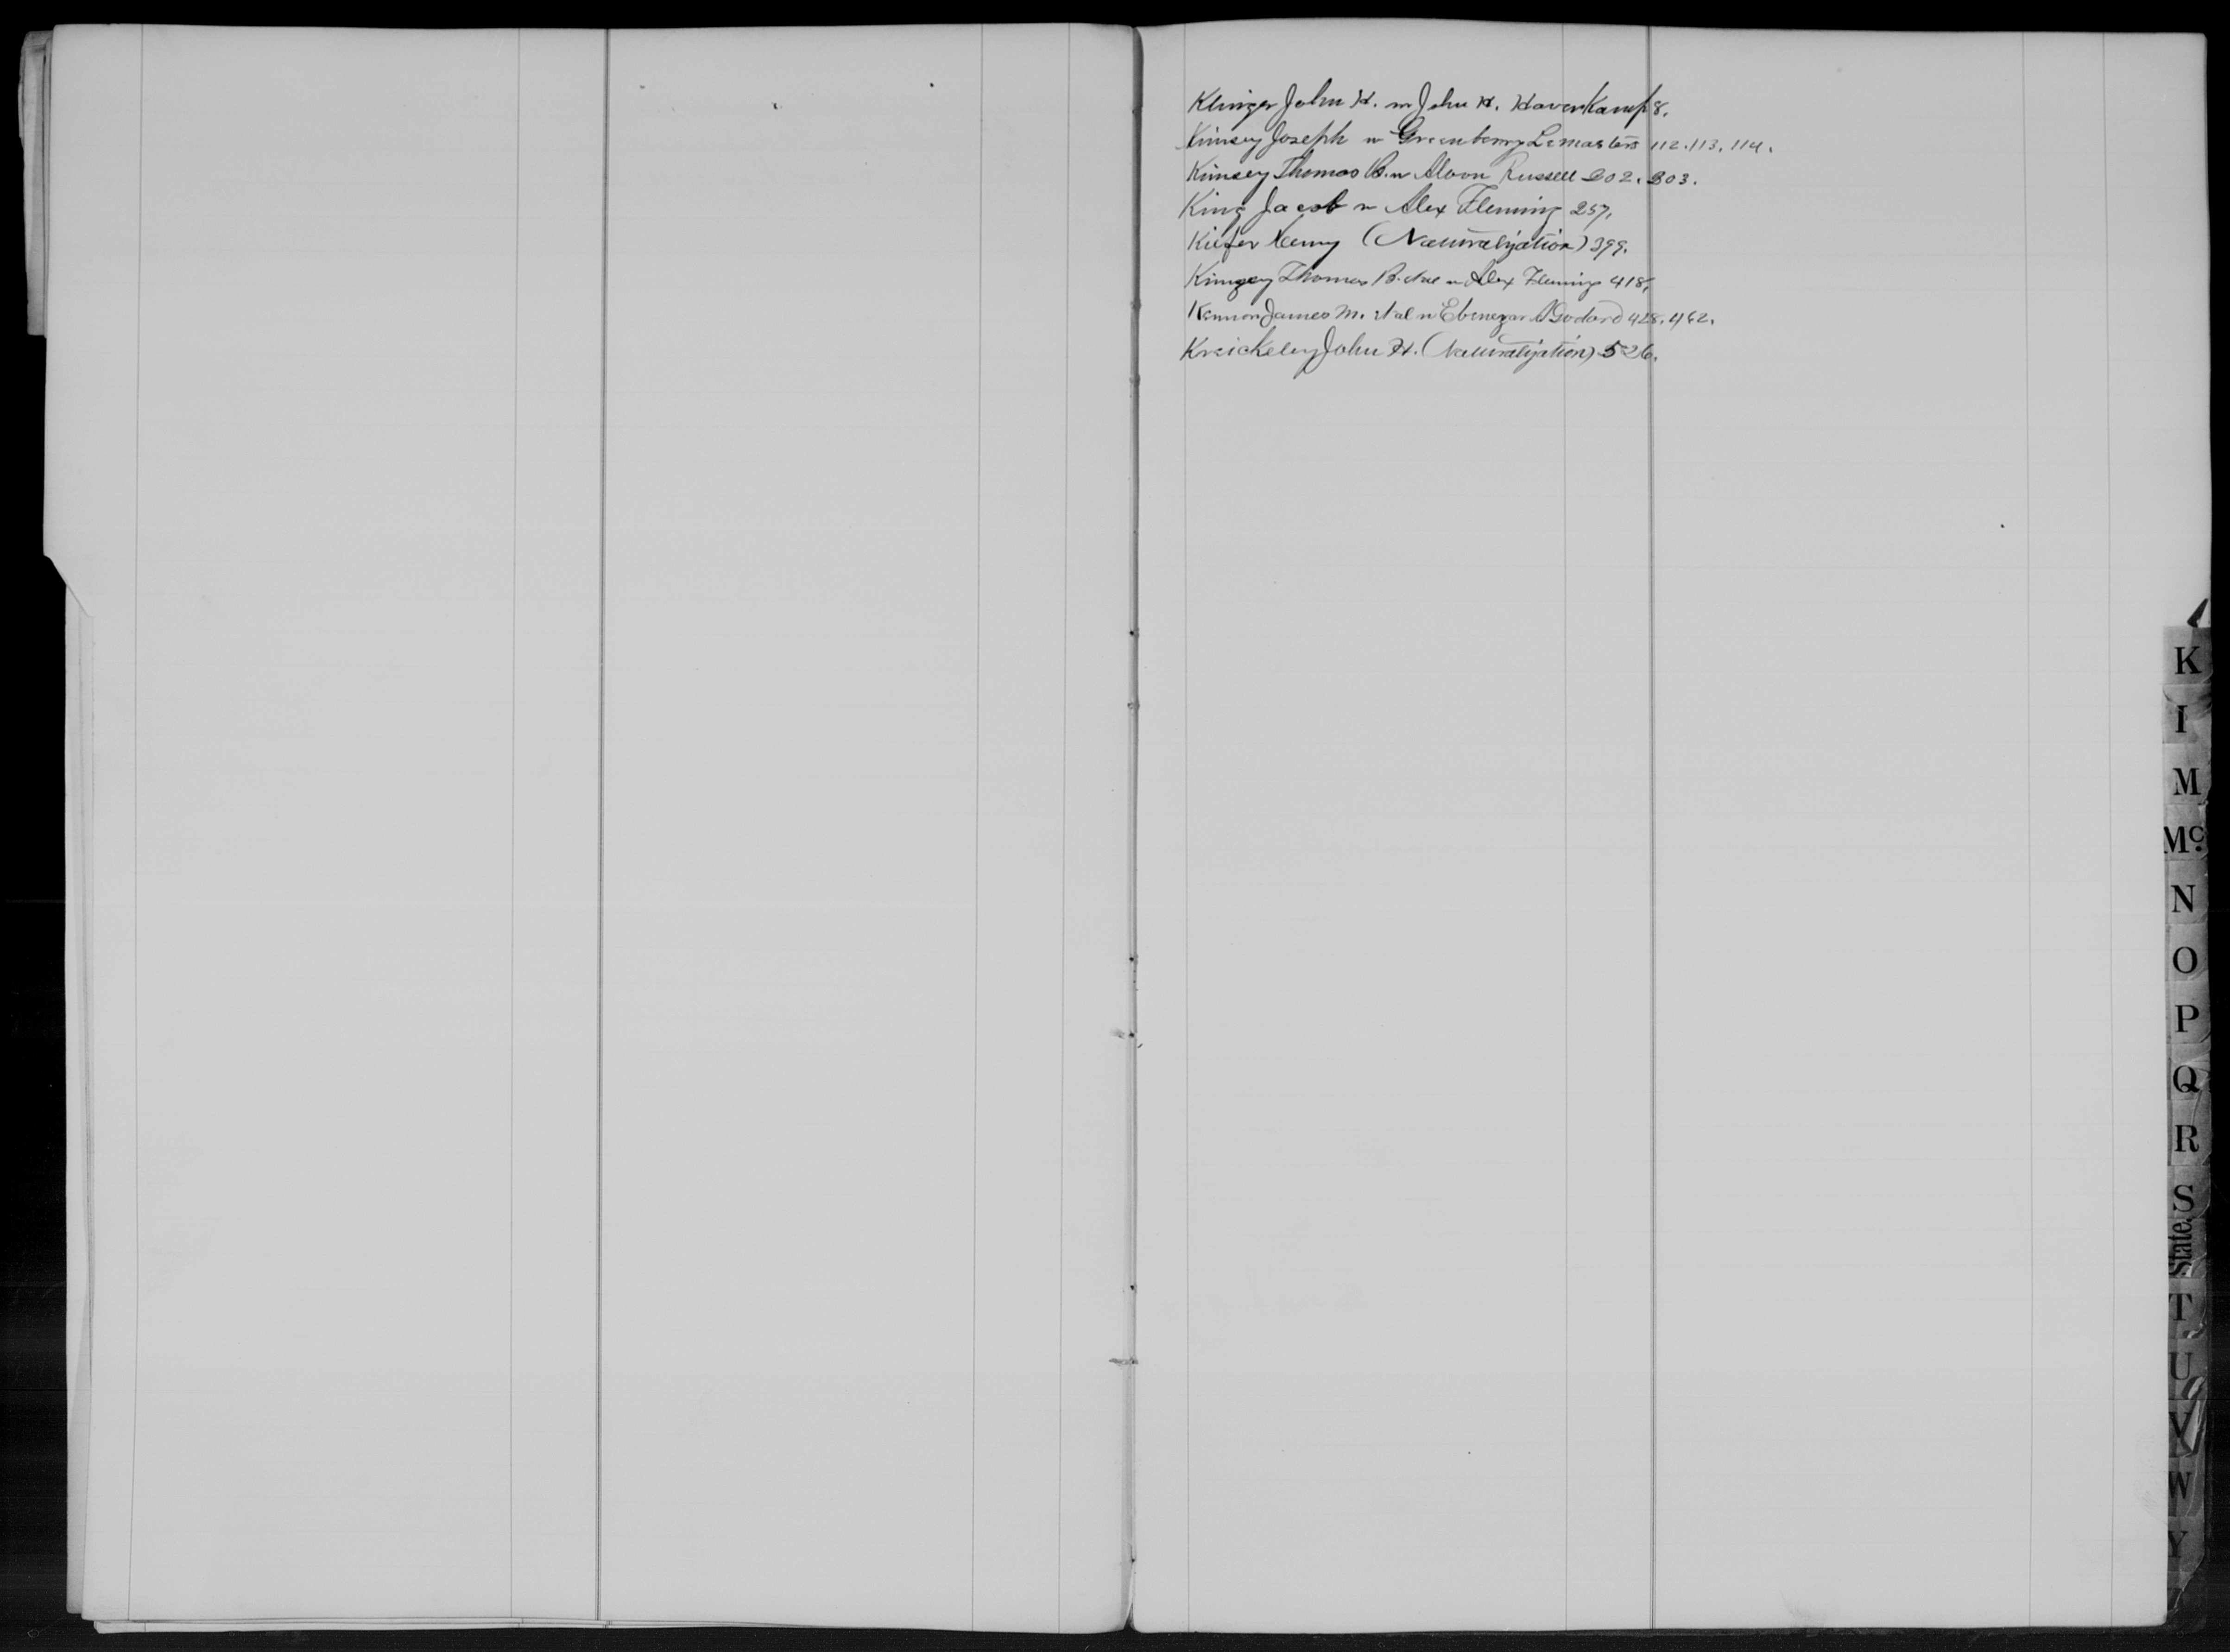 Klinger John H. vs John H. Haverkamp 8.
Kimsey Joseph vs Greenberry Lemasters 112. 113. 114.
Kimsey Thomas B. vs Alvon Russell 202. 203.
King Jacob vs Alex Fleming 257.
Kiefer Henry (Naturalization) 399.
Kimzey Thomas B. et al vs Alex Fleming 418.
James M. et al vs Ebenezar Godard 428. 462.
John H. (Naturalization) 526.
K
I
M
Mc.
N
O
P
Q
R
S
State.
T
U
V
W
Y